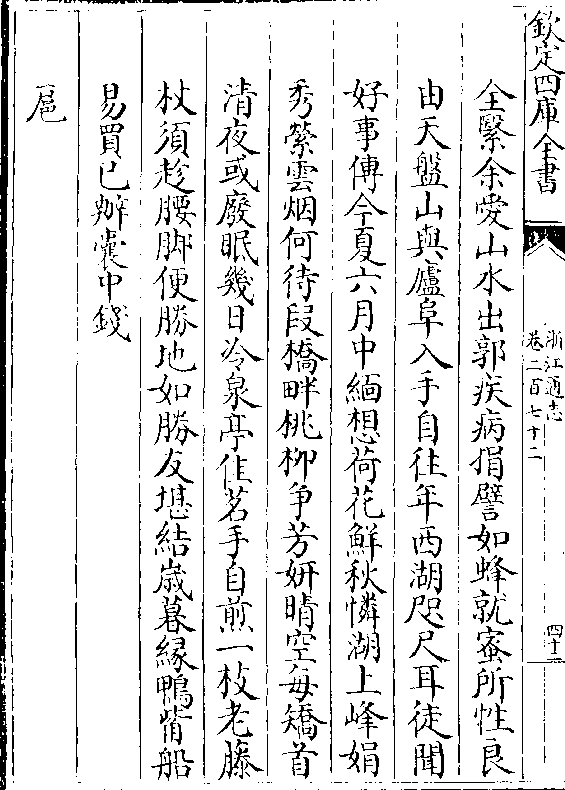 欽定四庫全書
浙江通志
卷二百七十二
四十二
全緊余愛山水出郭疾病捐譬如蜂就蜜所性良
由天盤山與廬阜入手自往年西湖咫尺耳徒聞
好事傳今夏六月中緬想荷花鮮秋憐湖上峰娟
秀縈雲烟何待段橋畔桃柳爭芳妍晴空每矯首
清夜或廢眠幾日冷泉亭佳茗手自煎一枝老藤
杖須趁腰脚便勝地如勝友堪結歳暮緣鴨觜船
易買已辦囊中錢
扈